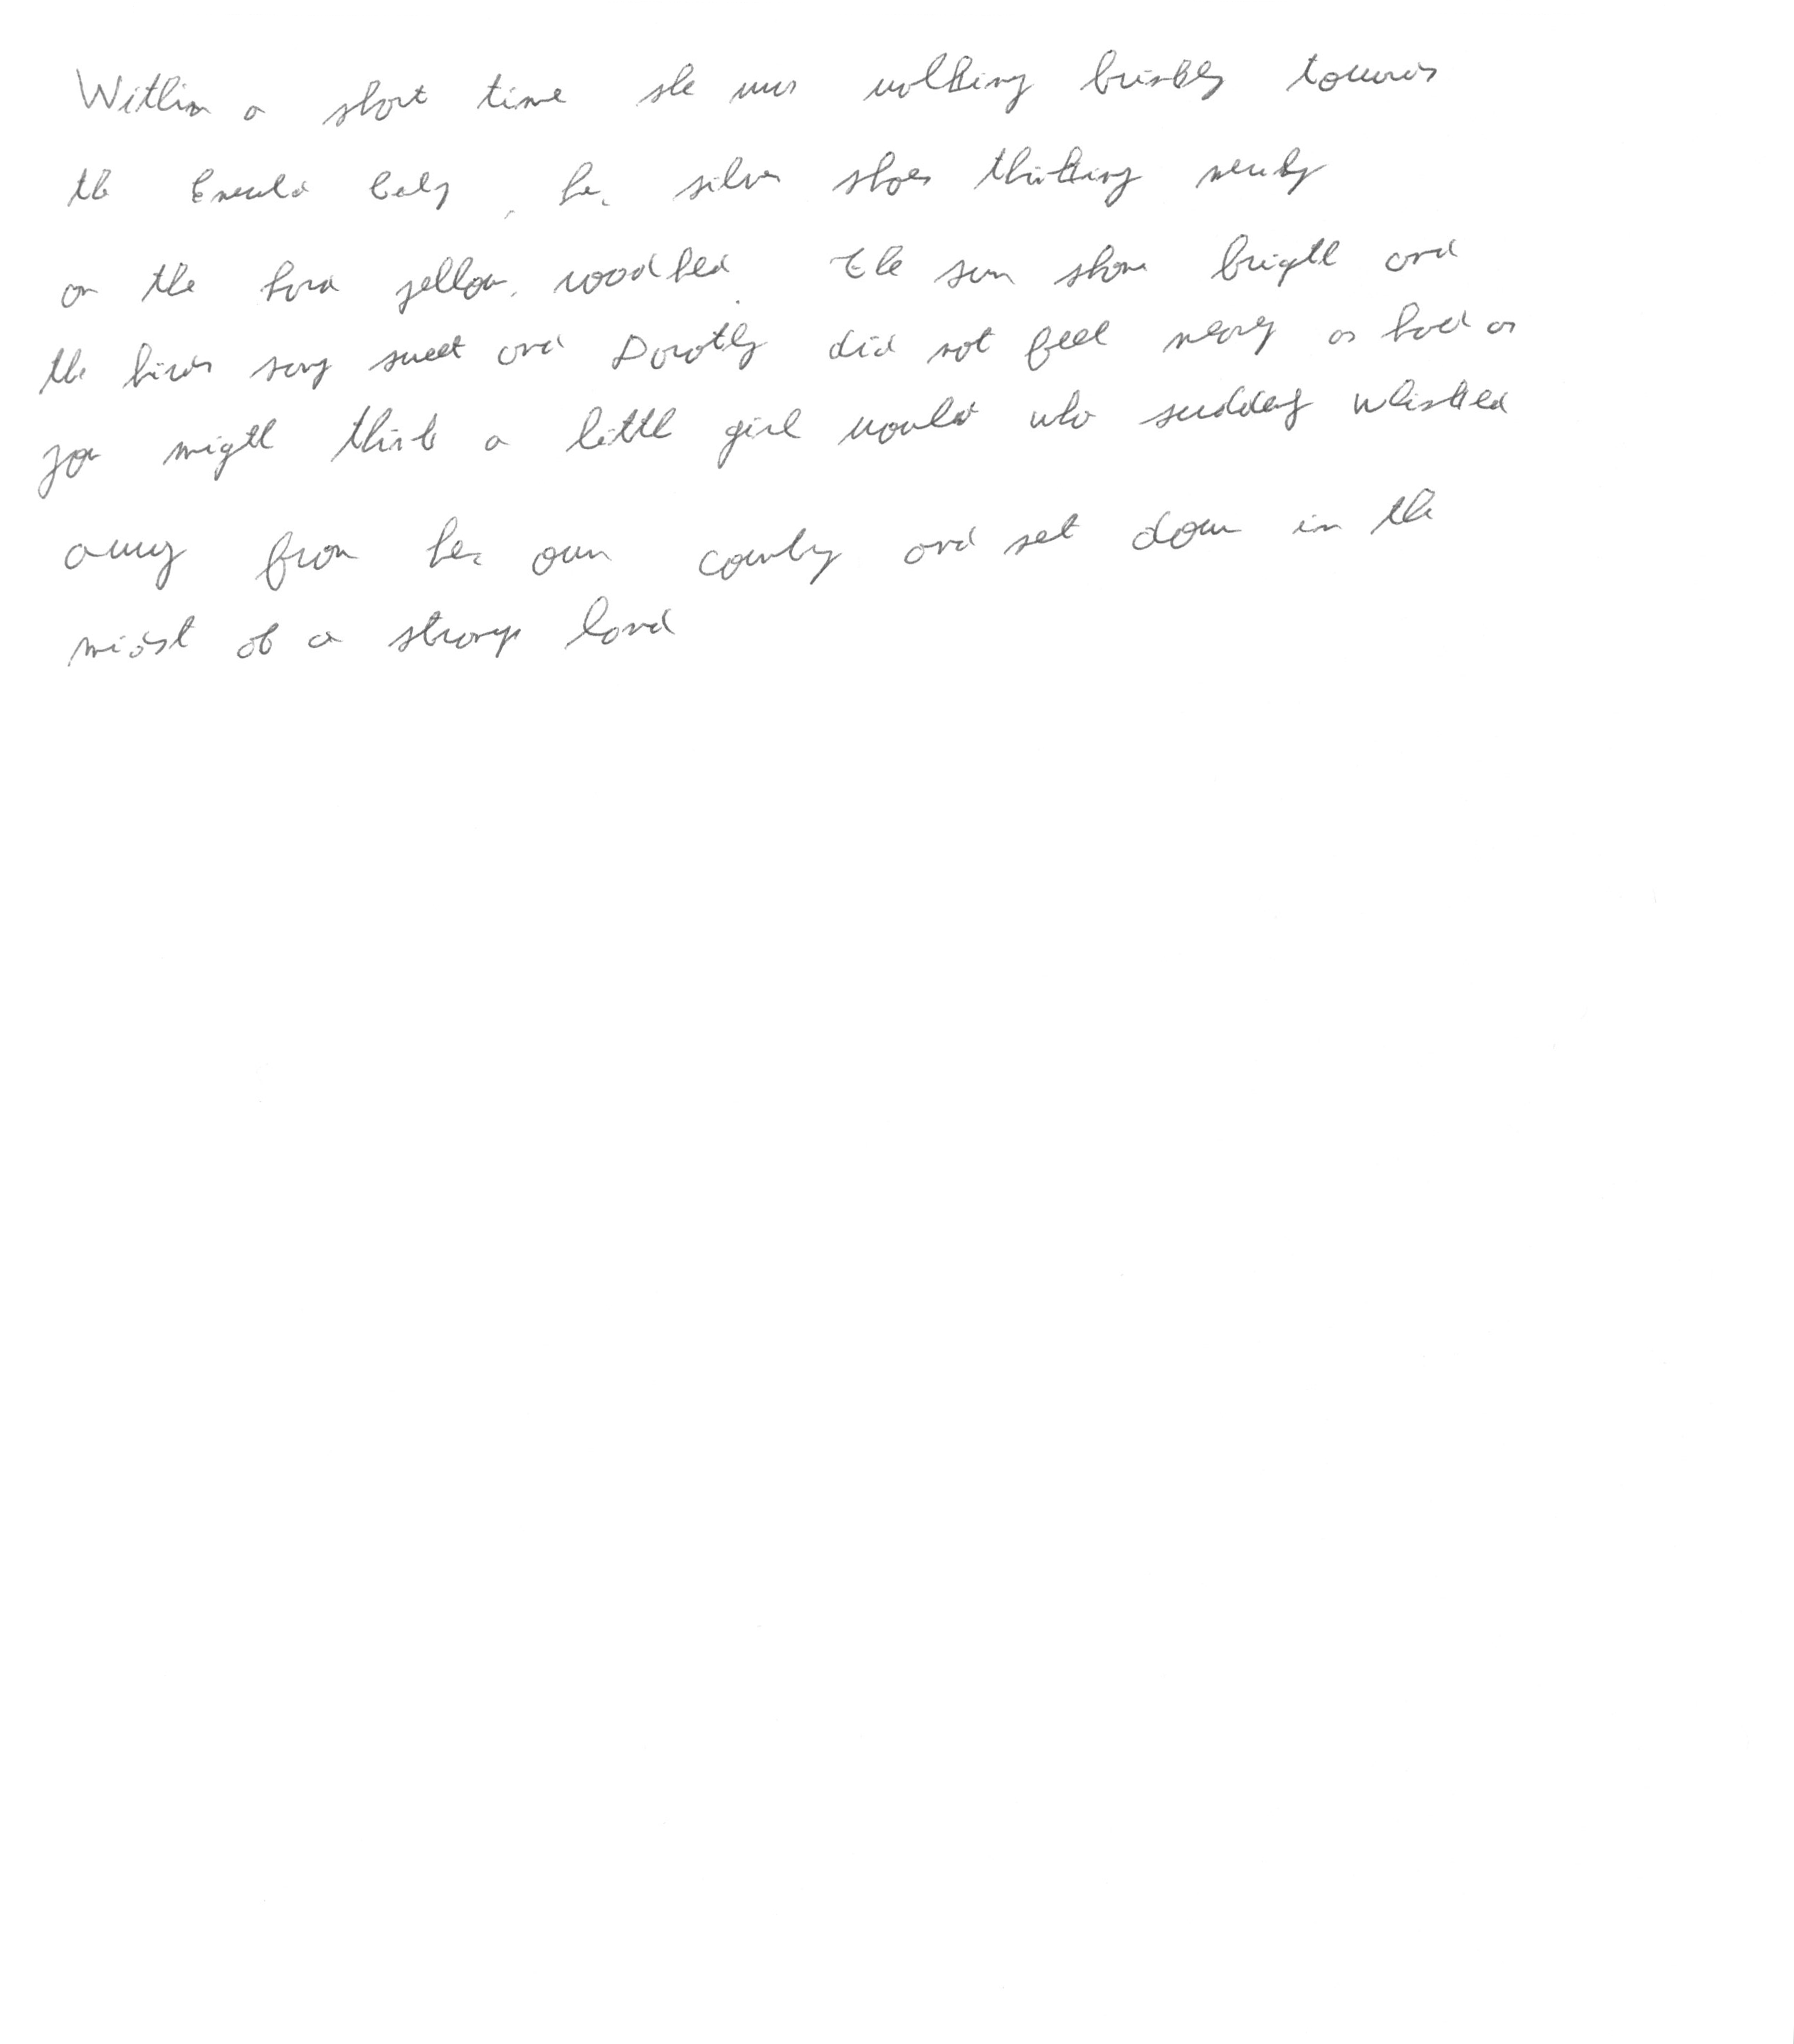 Within a short time she was walking briskly towards
the Emerald City, her silver shoes tinkling merrily
on the hard yellow, roadbed. The sun shone bright and
the birds sang sweet and Dorothy did not feel nearly as bad as
you might think a little girl would who suddenly whisked
away from her own country and set down in the
midst of a strange land